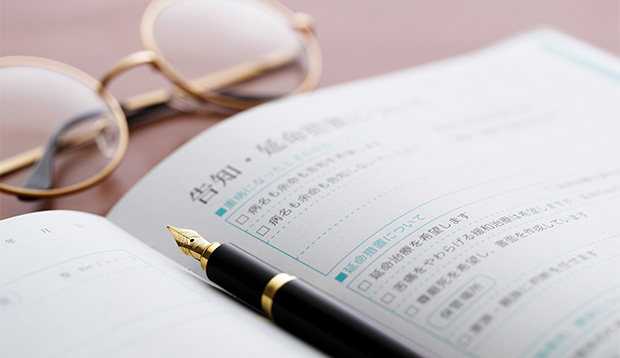 年 月 日
印
告知・延命措置について
■重病になったときの告知
□病名も余命も告知を希望します
□病名も余命も告知しないで
■延命措置について
□延命治療を希望します
□苦痛をやわらげる緩和治療は希望しますが
□尊厳死を希望し、書面を作成しています
保管場所
□家族・親族に判断を任せます